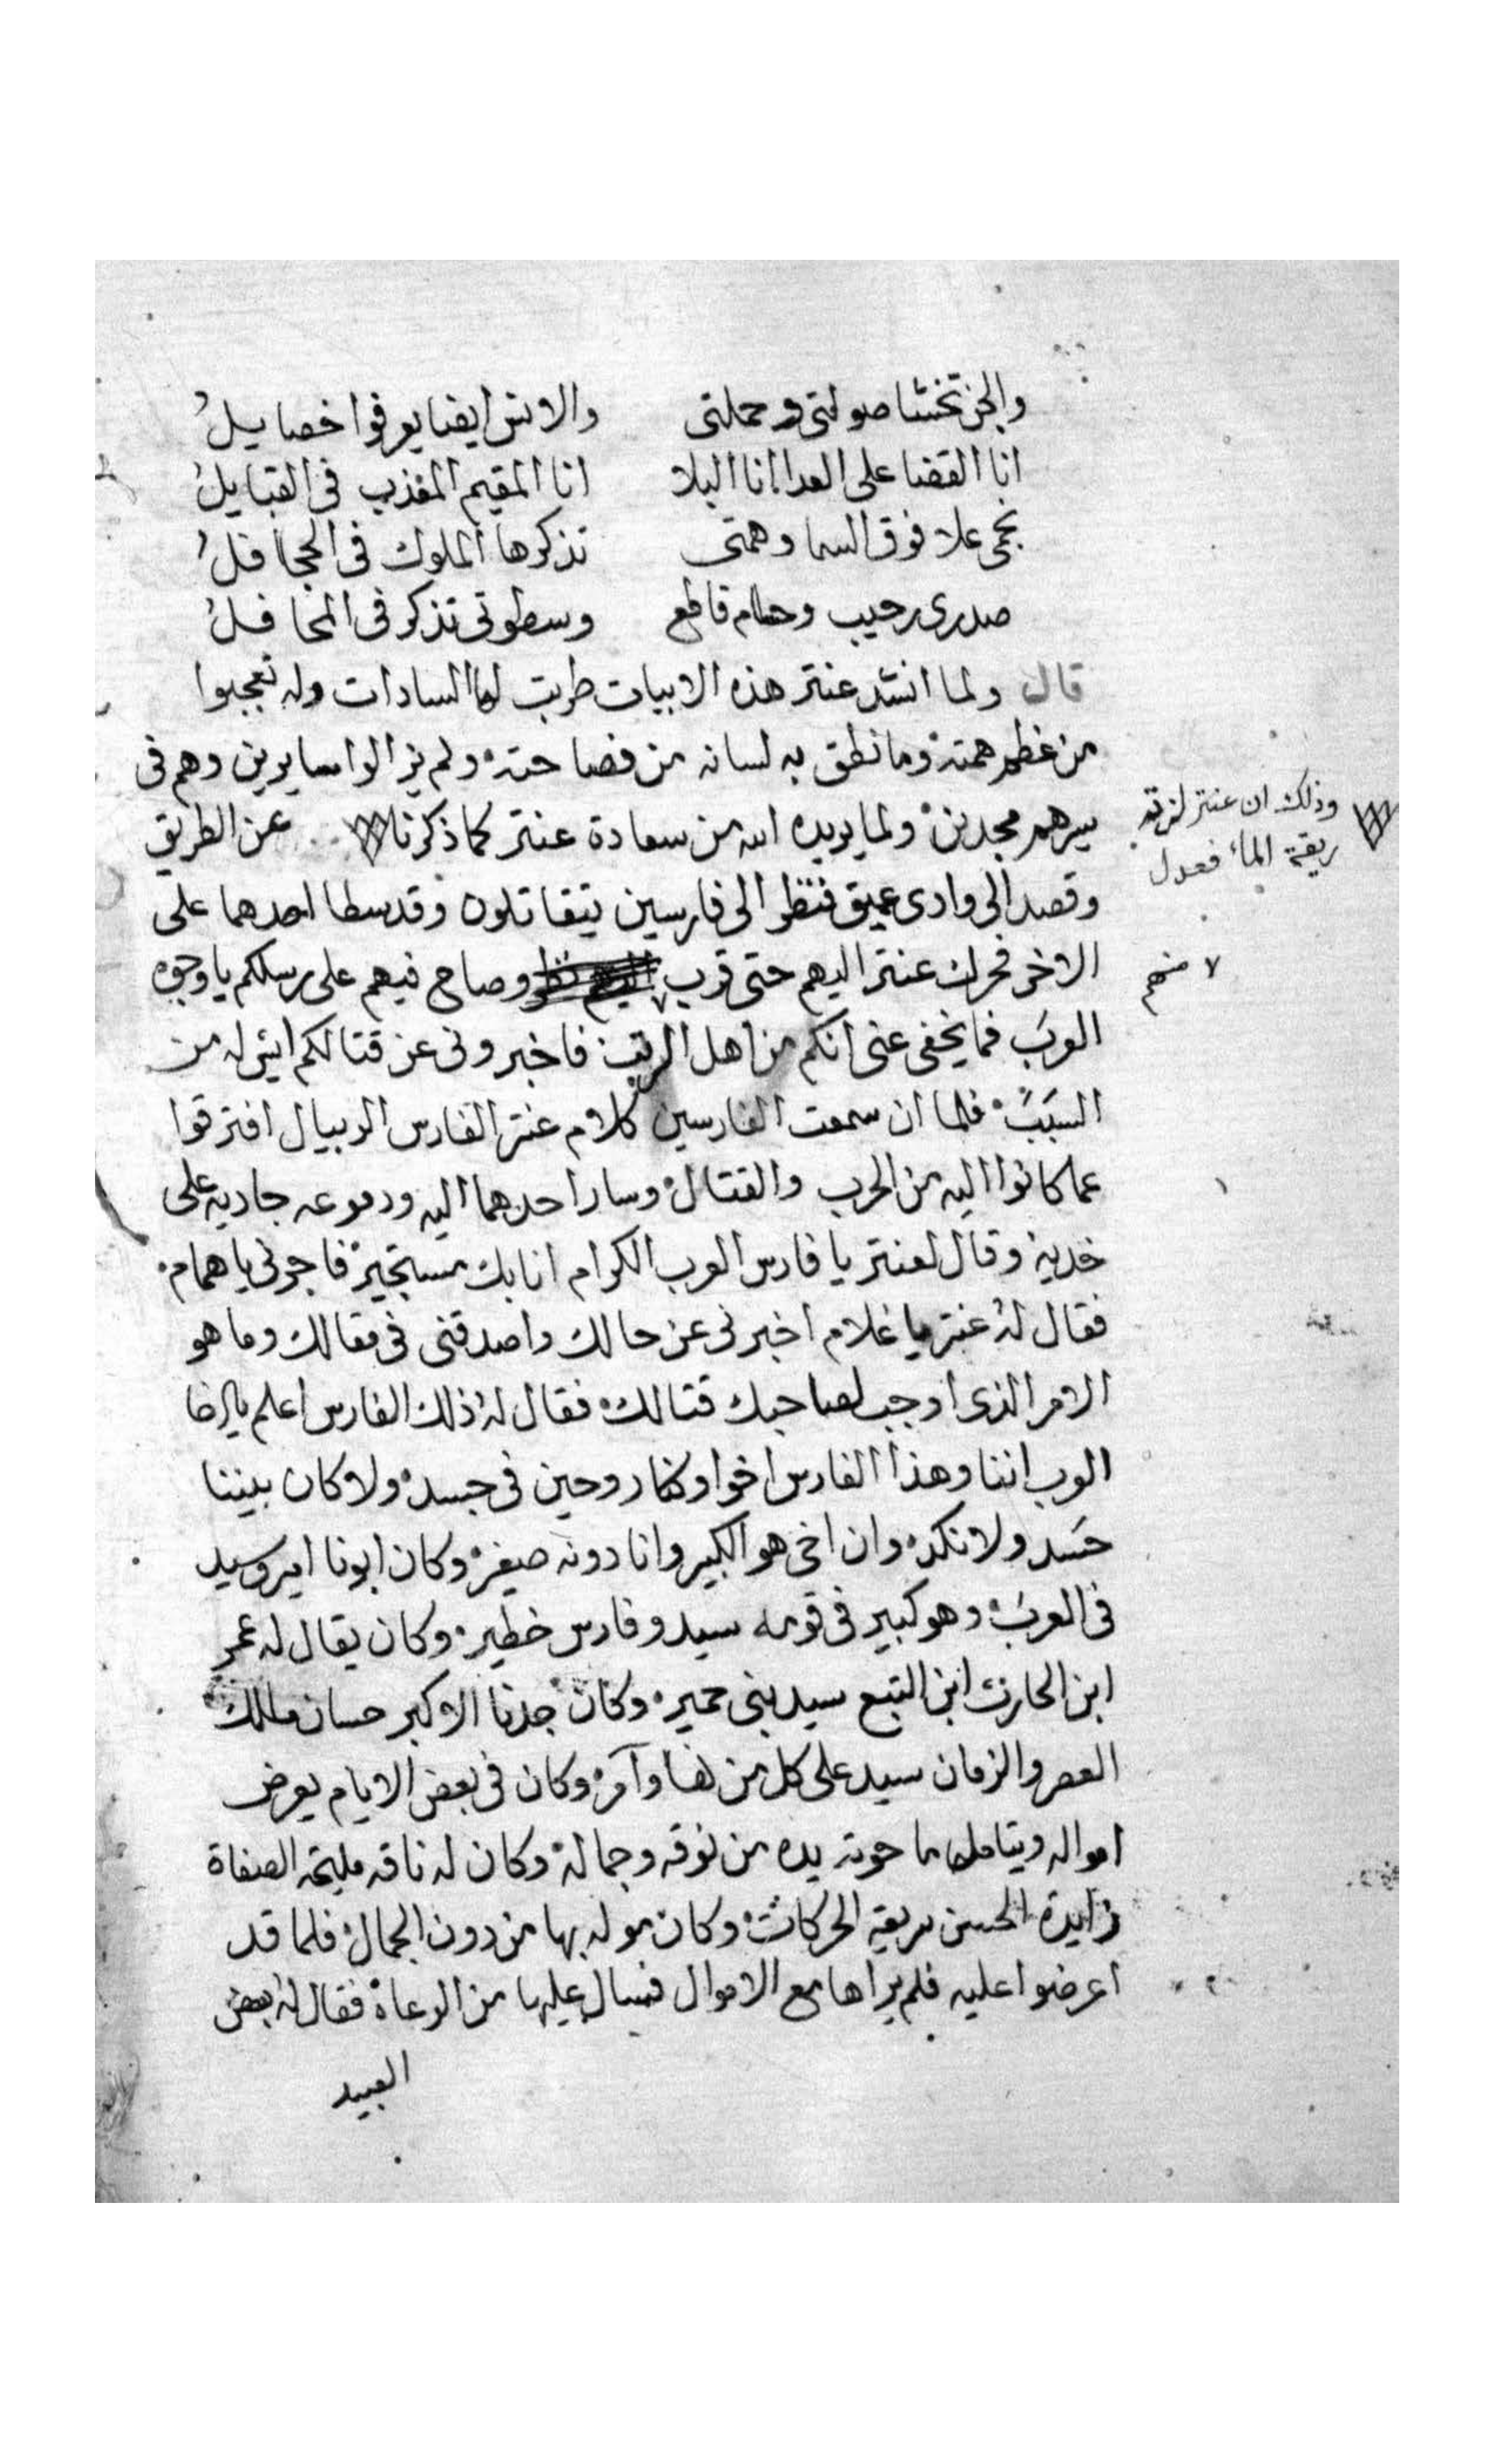 والجن تخشا صولتي وحملتي والانس ايضا يعرفوا خصايلُ
انا القضا على العدا انا البلا انا المقيم المغذب في القبايلُ
نجمي علا فوق السما وهمتي تذكرها الملوك في الجحافلُ
صدري رحيب وحسام قاطع وسطوتي تذكر في المحافلُ
قال ولما انشد عنتر هذه الابيات طربت لها السادات وله تعجبوا
من عظم همته وما نطق به لسانه من فصاحته ولم يزالوا سايرين وهم في
سيرهم مجدين ولما يريده الله من سعادة عنتر كما ذكرنا عن الطريق
وذلك ان عنتر لزقته
ريقة الماء فعدل
وقصد الى وادي عميق فنظر الى فارسين يتقاتلون وقد سطا احدهما على
الاخر فحرك عنتر اليهم حتى قرب وصاح فيهم على رسلكم يا وجوه
٧ منهم
العرب فما يخفى عني انكم من اهل الرتب فاخبروني عن قتالكم ايش له من
السبب فلما ان سمعت الفارسين كلام عنتر الفارس الريبال افترقوا
عما كانوا اليه من الحرب والقتال وسار احدهما اليه ودموعه جاريه على
خديه وقال لعنتر يا فارس العرب الكرام انا بك مستجير فاجرني يا همام
فقال له عنتر يا غلام اخبرني عن حالك واصدقني في مقالك وما هو
الامر الذي اوجب لصاحبك قتالك فقال له ذلك الفارس اعلم يا اخا
العرب اننا وهذا الفارس اخوا وكنا روحين في جسد ولا كان بيننا
حسد ولا نكد وان اخي هو الكبير وانا دونه صغير وكان ابونا امير وسيد
في العرب وهو كبير في قومه سيد وفارس خطير وكان يقال له عمر
ابن الحارث ابن التبع سيد بني حمير وكان جدنا الاكبر حسان مالك
العصر والزمان سيد على كل من نها وآمر وكان في بعض الايام يعرض
امواله ويتامل ما حوته يده من نوقه وجماله وكان له ناقه مليحة الصفاة
زايدة الحسن سريعة الحركات وكان موله بها من دون الجمال فلما قد
اعرضوا عليه فلم يراها مع الاموال فسال عليها من الرعاة فقال له بعض
العبيد